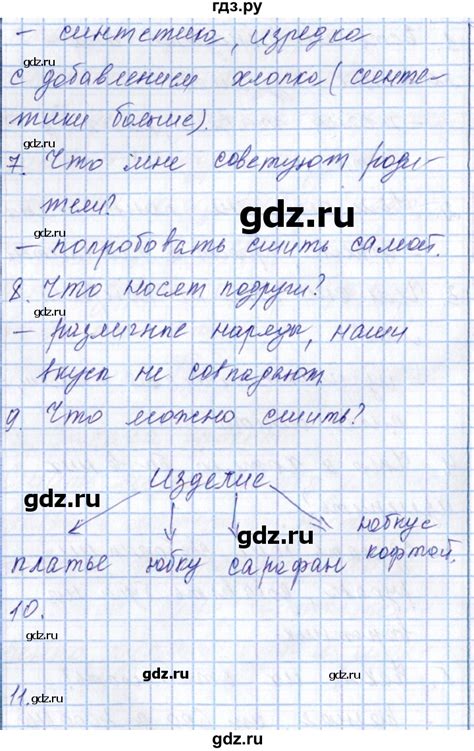 гдз.ру
- синтетика, изредка
gdz.ru gdz.ru
с добавлением хлопка (синте-
тики больше).
gdz.ru
7. Что мне советуют роди-
тели?
gdz.ru
- попробовать сшить самой.
gdz.ru
8. Что носят подруги?
- различные наряды, наши
вкусы не совпадают
gdz.ru
9. Что можно сшить?
Изделие
gdz.ru
gdz.ru
платье юбку сарафан юбку с
кофтой.
10.
gdz.ru gdz.ru
11.
gdz.ru